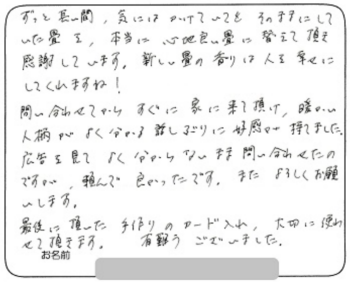 ずっと長い間、気にはかけていてもそのままにして
いた畳を、本当に心地良い畳に替えて頂き
感謝しています。新しい畳の香りは人を幸せに
してくれますね！
問い合わせてからすぐに家に来て頂け、暖かい
人柄がよく分かる話しぶりに好感が持てました。
広告を見てよく分からないまま問い合わせたの
ですが、頼んで良かったです。またよろしくお願
いします。
最後に頂いた手作りのカード入れ、大切に使わ
せて頂きます。有難うございました。
お名前